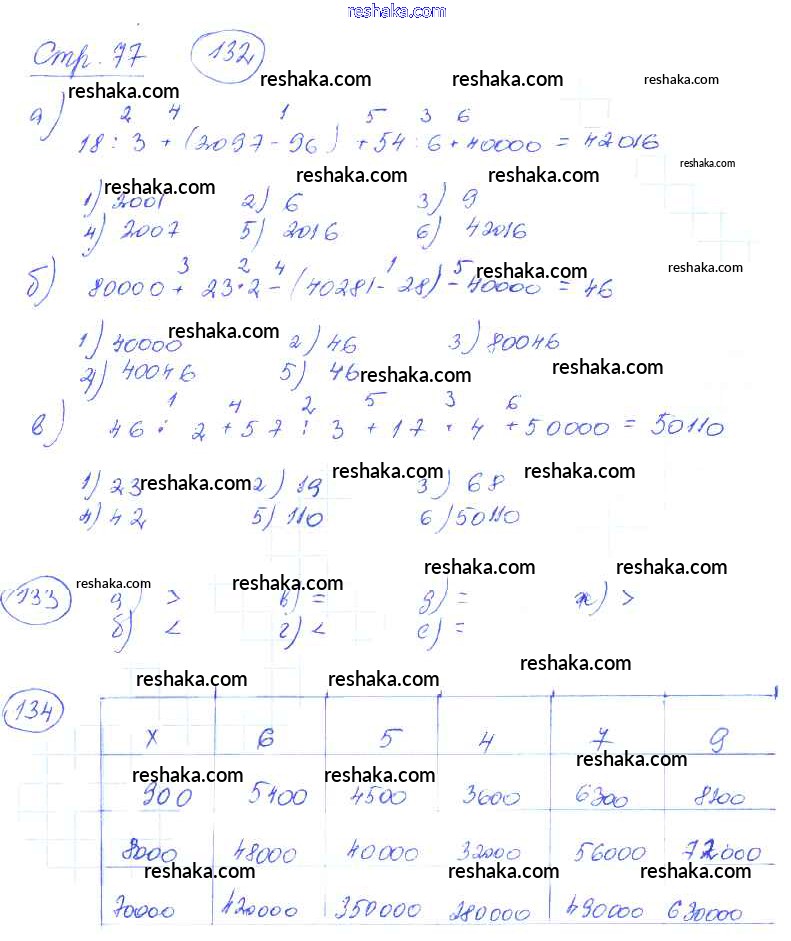 reshaka.com
Стр. 77 132
reshaka.com reshaka.com reshaka.com
reshaka.com
а) 2 4 1 5 3 6
18 : 3 + (2097 - 96) + 54 : 6 + 40000 = 42016
reshaka.com reshaka.com reshaka.com reshaka.com
1) 2001 2) 6 3) 9
4) 2007 5) 2016 6) 42016
б) 3 2 4 1 5 reshaka.com reshaka.com
80000 + 23 · 2 - (4028) - 28) - 40000 = 46
reshaka.com reshaka.com
1) 40000 2) 46 3) 80046
4) 40046 5) 46 reshaka.com reshaka.com
в) 1 4 2 5 3 6
46 : 2 + 57 : 3 + 17 · 4 + 50000 = 50110
reshaka.com reshaka.com reshaka.com
1) 23 2) 19 3) 68
4) 42 5) 110 6) 50110
reshaka.com reshaka.com reshaka.com reshaka.com
133 а) > в) = д) = ж) >
б) < г) < е) =
reshaka.com reshaka.com reshaka.com
134
x 6 5 4 7 9
reshaka.com reshaka.com reshaka.com
900 5400 4500 3600 6300 8100
8000 48000 40000 32000 56000 72000
reshaka.com reshaka.com reshaka.com reshaka.com
70000 420000 350000 280000 490000 630000